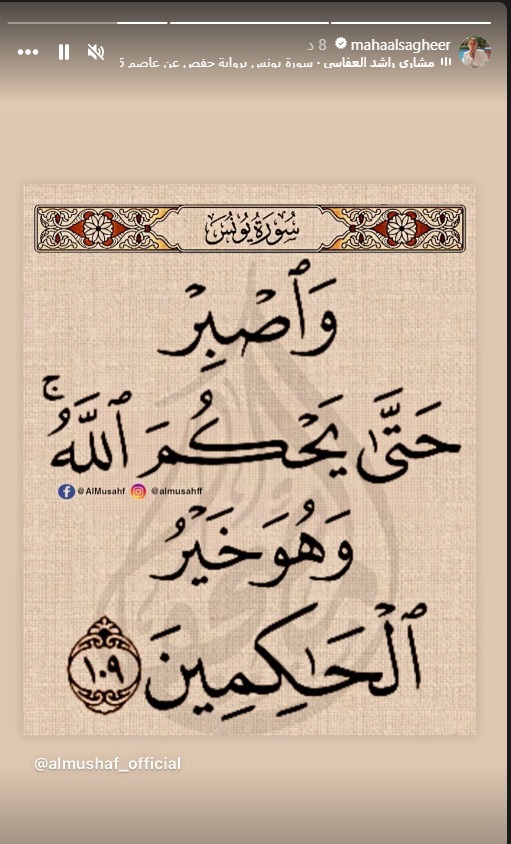 mahaalsagheer 8 د
مشاري راشد العفاسي · سورة يونس برواية حفص عن عاصم 5
سُورَةُ يُونُسَ
وَٱصۡبِرۡ
حَتَّىٰ يَحۡكُمَ ٱللَّهُۚ
@AlMusahf @almusahff
وَهُوَ خَيۡرُ
ٱلۡحَٰكِمِينَ ١٠٩
@almushaf_official